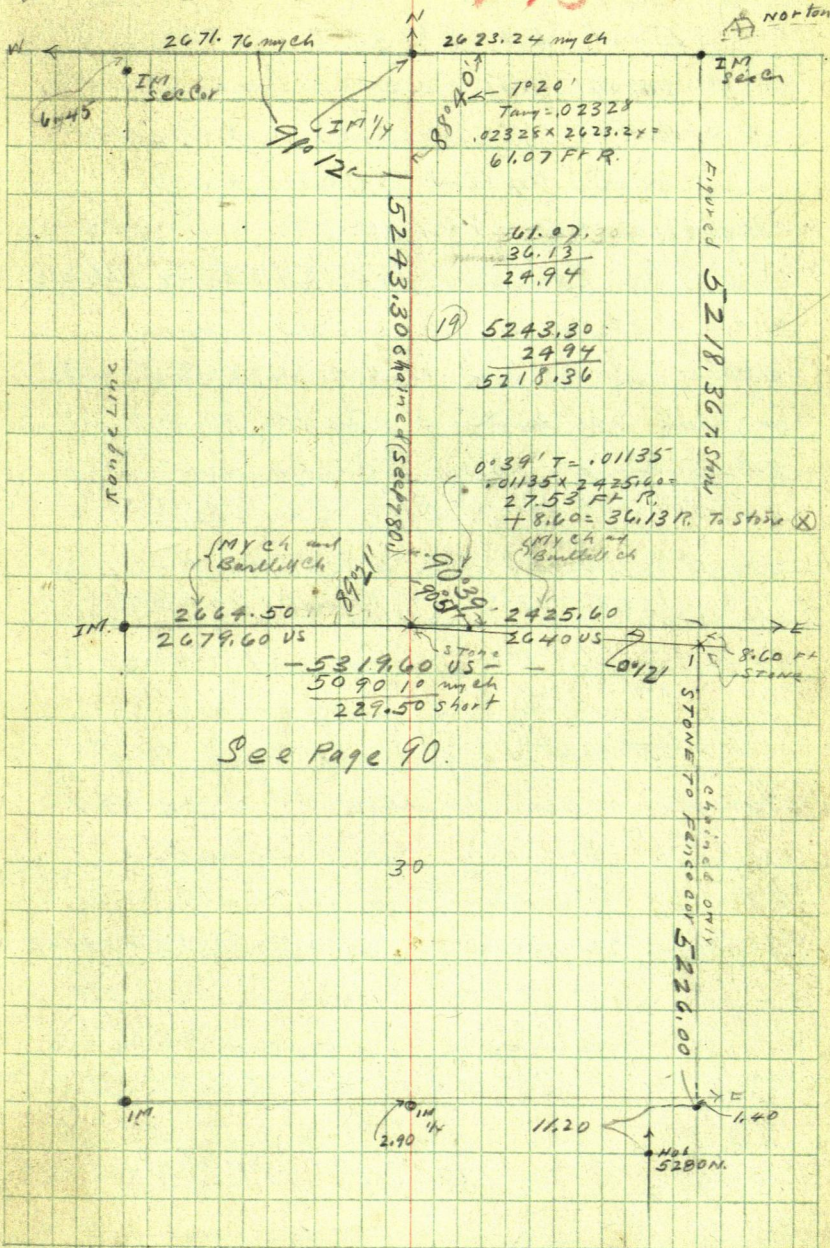 N
Norton
W
2671.76 my ch
2623.24 my ch
IM
Sec Cor
IM
IM 1/4
88°40'
1°20'
Tang = .02328
.02328 x 2623.24 =
61.07 Ft R.
61.07
36.13
24.94
19
5243.30
24.94
5218.36
5243.30 chained (See p. 80.)
Figured 5218.36 To Stone
Range Line
0°39' T = .01135
.01135 x 2425.60 =
27.53 Ft R.
+ 8.60 = 36.13 R. To Stone X
My ch and
Bartlett ch
My ch and
Bartlett ch
89°21'
90°39'
IM.
2664.50
2425.60
E
2679.60 US
2640 US
Stone
0°12'
8.60 Ft
STONE
- 5319.60 US -
5090 10 my ch
229.50 short
See Page 90.
30
STONE TO Fence cor 5226.00
chained only
IM.
IM
1/4
2.90
11.20
1.40
Hub
5280 N.